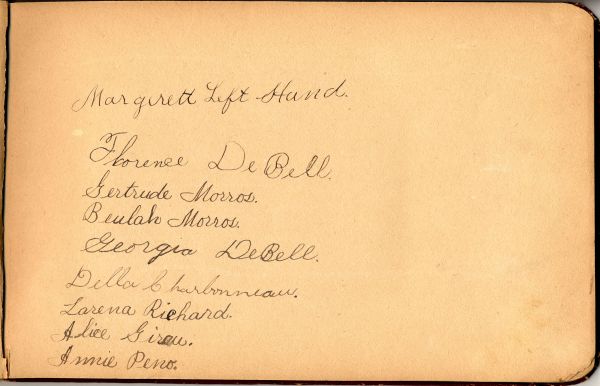 Margirett Left Hand.
Florence DeBell.
Gertrude Morros.
Beulah Morros.
Georgia DeBell.
Della Charbonneau.
Larena Richard.
Alice Girou.
Annie Peno.